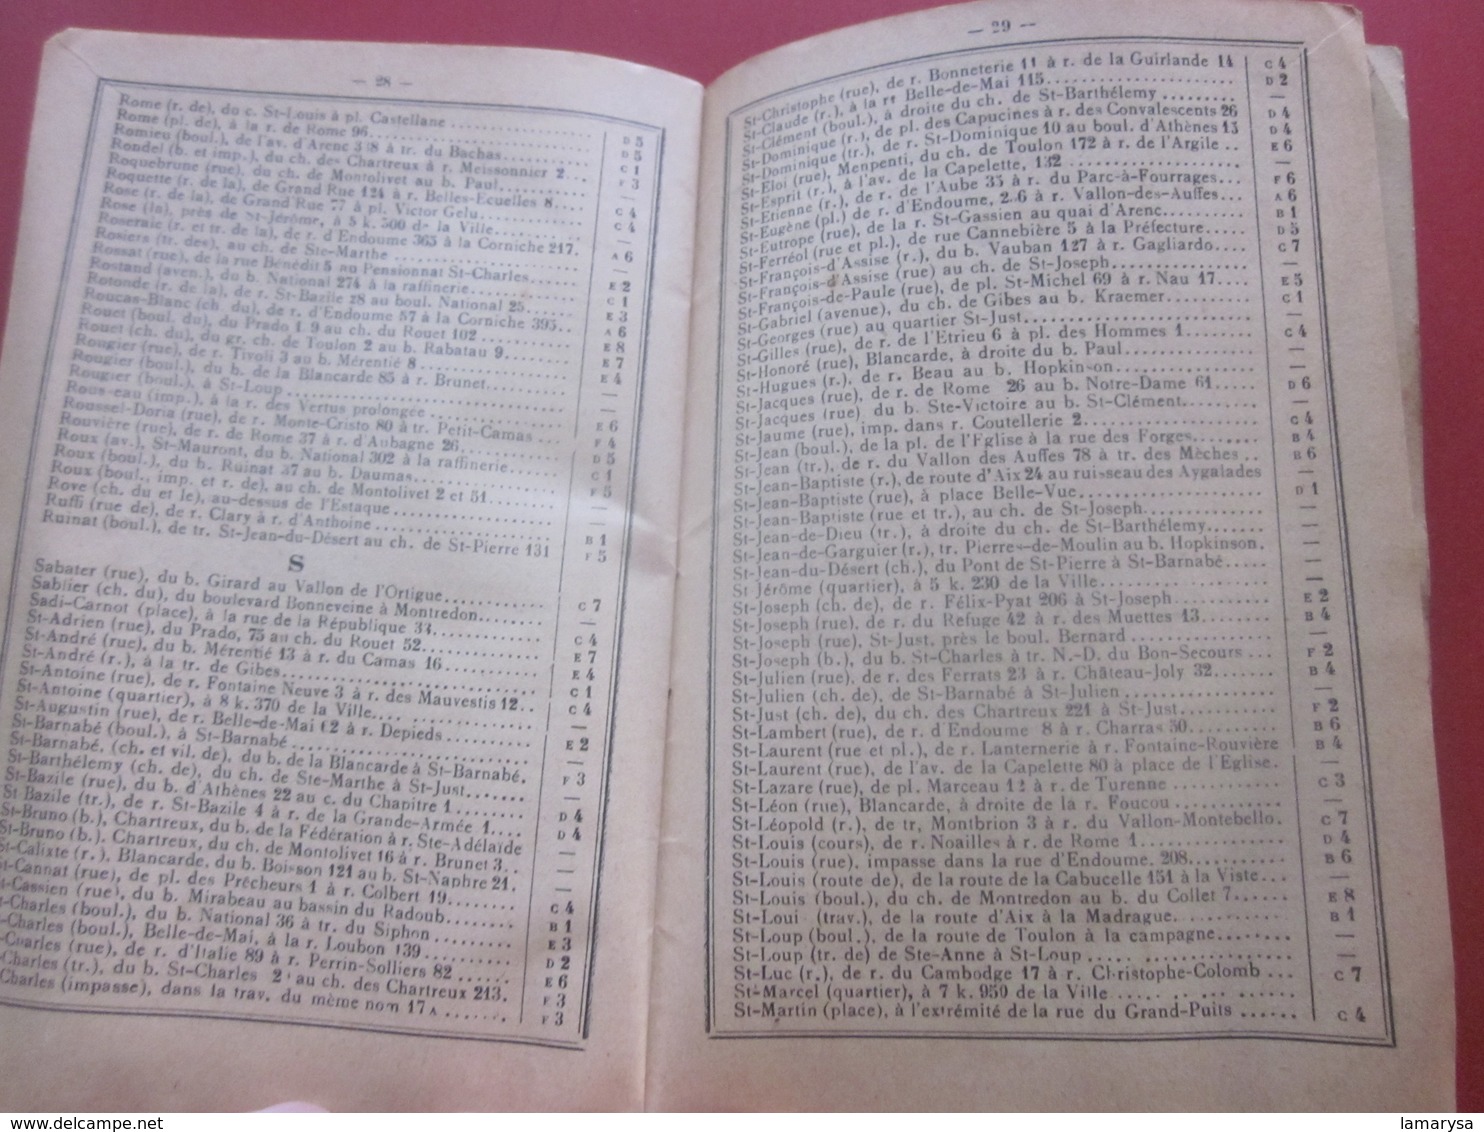 — 28 —
Rome (r. de), du c. St-Louis à pl. Castellane ........ D 5
Rome (pl. de), à la r. de Rome 96. ........ D 5
Romieu (boul.), de l'av. d'Arenc 338 à tr. du Bachas ........ C 1
Rondel (b. et imp.), du ch. des Chartreux à r. Meissonnier 2 ... F 3
Roquebrune (rue), du ch. de Montolivet au b. Paul ........ —
Roquette (r. de la), de Grand Rue 124 à r. Belles-Ecuelles 8 .... C 4
Rose (r. de la), de Grand Rue 77 à pl. Victor Gelu ........ C 4
Rose (la), près de St-Jérôme, à 5 k. 500 de la Ville ........ —
Roseraie (r. et tr. de la), de r. d'Endoume 365 à la Corniche 217. A 6
Rosiers (tr. des), au ch. de Ste-Marthe ........ —
Rossat (rue), de la rue Bénédit 5 au Pensionnat St-Charles. E 2
Rostand (aven.), du b. National 274 à la raffinerie ........ C 1
Rotonde (r. de la), de r. St-Bazile 28 au boul. National 25 ........ E 3
Roucas-Blanc (ch. du), de r. d'Endoume 57 à la Corniche 395 .. A 6
Rouet (boul. du), du Prado 1 9 au ch. du Rouet 102 ........ E 8
Rouet (ch. du), du gr. ch. de Toulon 2 au b. Rabatau 9. ........ E 7
Rougier (rue), de r. Tivoli 3 au b. Mérentié 8 ........ E 4
Rougier (boul.), du b. de la Blancarde 85 à r. Brunet ........ —
Rougier (boul.), à St-Loup ........ —
Rousseau (imp.), à la r. des Vertus prolongée ........ E 6
Roussel-Doria (rue), de r. Monte-Cristo 80 à tr. Petit-Camas ... F 4
Rouvière (rue), de r. de Rome 37 à r. d'Aubagne 26. ........ D 5
Roux (av.), St-Mauront, du b. National 302 à la raffinerie ........ C 1
Roux (boul.), du b. Ruinat 37 au b. Daumas ........ F 5
Roux (boul., imp. et r. de), au ch. de Montolivet 2 et 51 ........ —
Rove (ch. du et le), au-dessus de l'Estaque ........ —
Ruffi (rue de), de r. Clary à r. d'Anthoine ........ B 1
Ruinat (boul.), de tr. St-Jean-du-Désert au ch. de St-Pierre 131 F 5
S
Sabater (rue), du b. Girard au Vallon de l'Ortigue ........ C 7
Sablier (ch. du), du boulevard Bonneveine à Montredon ........ —
Sadi-Carnot (place), à la rue de la République 33. ........ C 4
St-Adrien (rue), du Prado, 75 au ch. du Rouet 52 ........ E 7
St-André (rue), du b. Mérentié 13 à r. du Camas 16 ........ E 4
St-André (r.), à la tr. de Gibes ........ C 1
St-Antoine (rue), de r. Fontaine Neuve 3 à r. des Mauvestis 12 .. C 4
St-Antoine (quartier), à 8 k. 370 de la Ville ........ —
St-Augustin (rue), de r. Belle-de-Mai 12 à r. Depieds ........ E 2
St-Barnabé (boul.), à St-Barnabé ........ —
St-Barnabé, (ch. et vil. de), du b. de la Blancarde à St-Barnabé. F 3
St-Barthélemy (ch. de), du ch. de Ste-Marthe à St-Just ........ —
St-Bazile (rue), du b. d'Athènes 22 au c. du Chapitre 1 ........ D 4
St Bazile (tr.), de r. St-Bazile 4 à r. de la Grande-Armée 1 .... D 4
St-Bruno (b.), Chartreux, du b. de la Fédération à r. Ste-Adélaïde —
St-Bruno (b.), Chartreux, du ch. de Montolivet 16 à r. Brunet 3 .. —
St-Calixte (r.), Blancarde, du b. Boisson 121 au b. St-Naphre 21. —
St-Cannat (rue), de pl. des Prêcheurs 1 à r. Colbert 19 ........ C 4
St-Cassien (rue), du b. Mirabeau au bassin du Radoub ........ B 1
St-Charles (boul.), du b. National 36 à tr. du Siphon ........ E 3
St-Charles (boul.), Belle-de-Mai, à la r. Loubon 139 ........ D 2
St-Charles (rue), de r. d'Italie 89 à r. Perrin-Solliers 82 ........ E 6
Charles (tr.), du b. St-Charles 2 au ch. des Chartreux 213. F 3
Charles (impasse), dans la trav. du même nom 17 A ........ F 3
— 29 —
St-Christophe (rue), de r. Bonneterie 11 à r. de la Guirlande 14 C 4
St-Claude (r.), à la rt Belle-de-Mai 115 ........ D 2
St-Clément (boul.), à droite du ch. de St-Barthélemy ........ —
St-Dominique (r.), de pl. des Capucines à r. des Convalescents 26 D 4
St-Dominique (tr.), de r. St-Dominique 10 au boul. d'Athènes 13 D 4
St-Eloi (rue), Menpenti, du ch. de Toulon 172 à r. de l'Argile .. E 6
St-Esprit (r.), à l'av. de la Capelette, 132 ........ —
St-Etienne (r.), de r. de l'Aube 35 à r. du Parc-à-Fourrages ... F 6
St-Eugène (pl.) de r. d'Endoume, 226 à r. Vallon-des-Auffes ... A 6
St-Eutrope (rue), de la r. St-Gassien au quai d'Arenc ........ B 1
St-Ferréol (rue et pl.), de rue Cannebière 5 à la Préfecture ........ D 5
St-François-d'Assise (r.), du b. Vauban 127 à r. Gagliardo ........ C 7
St-François-d'Assise (rue) au ch. de St-Joseph ........ —
St-François-de-Paule (rue), de pl. St-Michel 69 à r. Nau 17 ........ E 5
St-Gabriel (avenue), du ch. de Gibes au b. Kraemer ........ C 1
St-Georges (rue) au quartier St-Just ........ —
St-Gilles (rue), de r. de l'Etrieu 6 à pl. des Hommes 1 ........ C 4
St-Honoré (rue), Blancarde, à droite du b. Paul ........ —
St-Hugues (r.), de r. Beau au b. Hopkinson ........ —
St-Jacques (rue), de r. de Rome 26 au b. Notre-Dame 61 ..... D 6
St-Jacques (rue) du b. Ste-Victoire au b. St-Clément ........ —
St-Jaume (rue), imp. dans r. Coutellerie 2 ........ C 4
St-Jean (boul.), de la pl. de l'Eglise à la rue des Forges ........ B 4
St-Jean (tr.), de r. du Vallon des Auffes 78 à tr. des Mèches .. B 6
St-Jean-Baptiste (r.), de route d'Aix 24 au ruisseau des Aygalades
St-Jean-Baptiste (rue), à place Belle-Vue ........ D 1
St-Jean-Baptiste (rue et tr.), au ch. de St-Joseph ........ —
St-Jean-de-Dieu (tr.), à droite du ch. de St-Barthélemy ........ —
St-Jean-de-Garguier (r.), tr. Pierre-de-Moulin au b. Hopkinson. —
St-Jean-du-Désert (ch.), du Pont de St-Pierre à St-Barnabé ..... —
St Jérôme (quartier), à 5 k. 230 de la Ville ........ —
St-Joseph (ch. de), de r. Félix-Pyat 206 à St-Joseph ........ E 2
St-Joseph (rue), de r. du Refuge 42 à r. des Muettes 13 ........ B 4
St-Joseph (rue), St-Just, près le boul. Bernard ........ —
St-Joseph (b.), du b. St-Charles à tr. N.-D. du Bon-Secours ... F 2
St-Julien (rue), de r. des Ferrats 23 à r. Château-Joly 32 ........ B 4
St-Julien (ch. de), de St-Barnabé à St-Julien ........ —
St-Just (ch. de), du ch. des Chartreux 221 à St-Just ........ F 2
St-Lambert (rue), de r. d'Endoume 8 à r. Charras 50 ........ B 6
St-Laurent (rue et pl.), de r. Lanternerie à r. Fontaine-Rouvière B 4
St-Laurent (rue), de l'av. de la Capelette 80 à place de l'Eglise. —
St-Lazare (rue), de pl. Marceau 12 à r. de Turenne ........ C 3
St-Léon (rue), Blancarde, à droite de la r. Foucou ........ —
St-Léopold (r.), de tr, Montbrion 3 à r. du Vallon-Montebello. C 7
St-Louis (cours), de r. Noailles à r. de Rome 1 ........ D 4
St-Louis (rue), impasse dans la rue d'Endoume. 208 ........ B 6
St-Louis (route de), de la route de la Cabucelle 151 à la Viste ... —
St-Louis (boul.), du ch. de Montredon au b. du Collet 7 ........ E 8
St-Loui (trav.), de la route d'Aix à la Madrague ........ B 1
St-Loup (boul.), de la route de Toulon à la campagne ........ —
St-Loup (tr. de) de Ste-Anne à St-Loup ........ —
St-Luc (r.), de r. du Cambodge 17 à r. Christophe-Colomb ... C 7
St-Marcel (quartier), à 7 k. 950 de la Ville ........ —
St-Martin (place), à l'extrémité de la rue du Grand-Puits ...... C 4
lamarysa